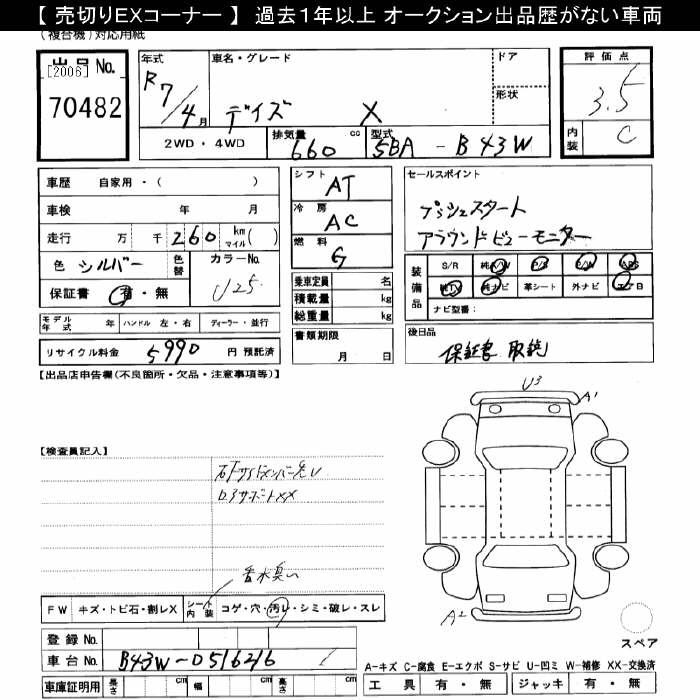 【 売切りEXコーナー 】 過去1年以上 オークション出品歴がない車両
(複合機)対応用紙
出品 No.
[2006]
70482
年式 R7/4月
車名・グレード
デイズ X
ドア
形状
評価点
3.5
内装 C
2WD・4WD
排気量 660 cc
型式 5BA - B43W
車歴 自家用・( )
車検 年 月
走行 万 千 260 km マイル ( )
色 シルバー 色替
カラーNo. J25
保証書 有・無
モデル年式 年 ハンドル 左・右 ディーラー・並行
リサイクル料金 5990 円 預託済
シフト AT
冷房 AC
燃料 G
乗車定員 名
積載量 kg
総重量 kg
書類期限
月 日
セールスポイント
プッシュスタート
アラウンドビューモニター
装備品
S/R 純A/W P/S P/W ABS
純TV 純ナビ 革シート 外ナビ エアB
ナビ型番:
後日品
保証書 取説
【出品店申告欄(不良箇所・欠品・注意事項等)】
U3
A1
【検査員記入】
A2
スペア
FW キズ・トビ石・割レX
シート内装 コゲ・穴・汚レ・シミ・破レ・スレ
登録 No.
車台 No. B43W-0516216
車庫証明用 長さ cm 幅 cm 高さ cm
A-キズ C-腐食 E-エクボ S-サビ U-凹ミ W-補修 XX-交換済
工具 有・無 ジャッキ 有・無